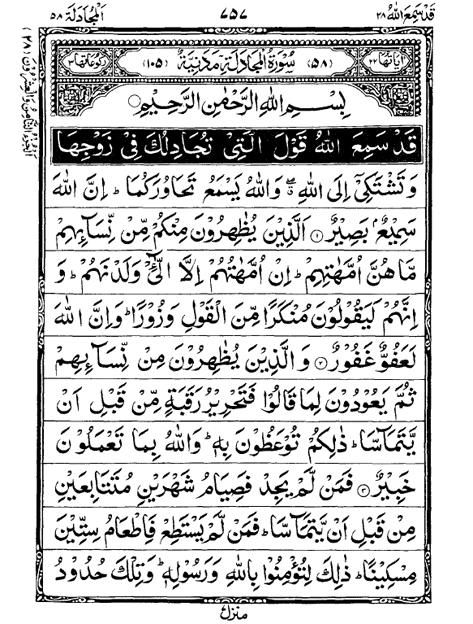 قد سمع الله ٢٨
٧٥٧
المجادلة ٥٨
اٰیاتها ٢٢
(٥٨) سُوْرَةُ الْمُجَادِلَةِ مَدَنِيَّةٌ (١٠٥)
رکوعاتها ٣
بِسْمِ اللهِ الرَّحْمٰنِ الرَّحِيْمِ
قَدْ سَمِعَ اللهُ قَوْلَ الَّتِيْ تُجَادِلُكَ فِيْ زَوْجِهَا
وَتَشْتَكِيْٓ اِلَى اللهِ ۖ وَاللهُ يَسْمَعُ تَحَاوُرَكُمَا ؕ اِنَّ اللهَ
سَمِيْعٌۢ بَصِيْرٌ ﴿١﴾ اَلَّذِيْنَ يُظٰهِرُوْنَ مِنْكُمْ مِّنْ نِّسَآئِهِمْ
مَّا هُنَّ اُمَّهٰتِهِمْ ؕ اِنْ اُمَّهٰتُهُمْ اِلَّا الّٰٓـِٔيْ وَلَدْنَهُمْ ؕ وَ
اِنَّهُمْ لَيَقُوْلُوْنَ مُنْكَرًا مِّنَ الْقَوْلِ وَزُوْرًا ؕ وَاِنَّ اللهَ
لَعَفُوٌّ غَفُوْرٌ ﴿٢﴾ وَالَّذِيْنَ يُظٰهِرُوْنَ مِنْ نِّسَآئِهِمْ
ثُمَّ يَعُوْدُوْنَ لِمَا قَالُوْا فَتَحْرِيْرُ رَقَبَةٍ مِّنْ قَبْلِ اَنْ
يَّتَمَآسَّا ؕ ذٰلِكُمْ تُوْعَظُوْنَ بِهٖ ؕ وَاللهُ بِمَا تَعْمَلُوْنَ
خَبِيْرٌ ﴿٣﴾ فَمَنْ لَّمْ يَجِدْ فَصِيَامُ شَهْرَيْنِ مُتَتَابِعَيْنِ
مِنْ قَبْلِ اَنْ يَّتَمَآسَّا ؕ فَمَنْ لَّمْ يَسْتَطِعْ فَاِطْعَامُ سِتِّيْنَ
مِسْكِيْنًا ؕ ذٰلِكَ لِتُؤْمِنُوْا بِاللهِ وَرَسُوْلِهٖ ؕ وَتِلْكَ حُدُوْدُ
منزل
الجزء الثامن والعشرون (٢٨)